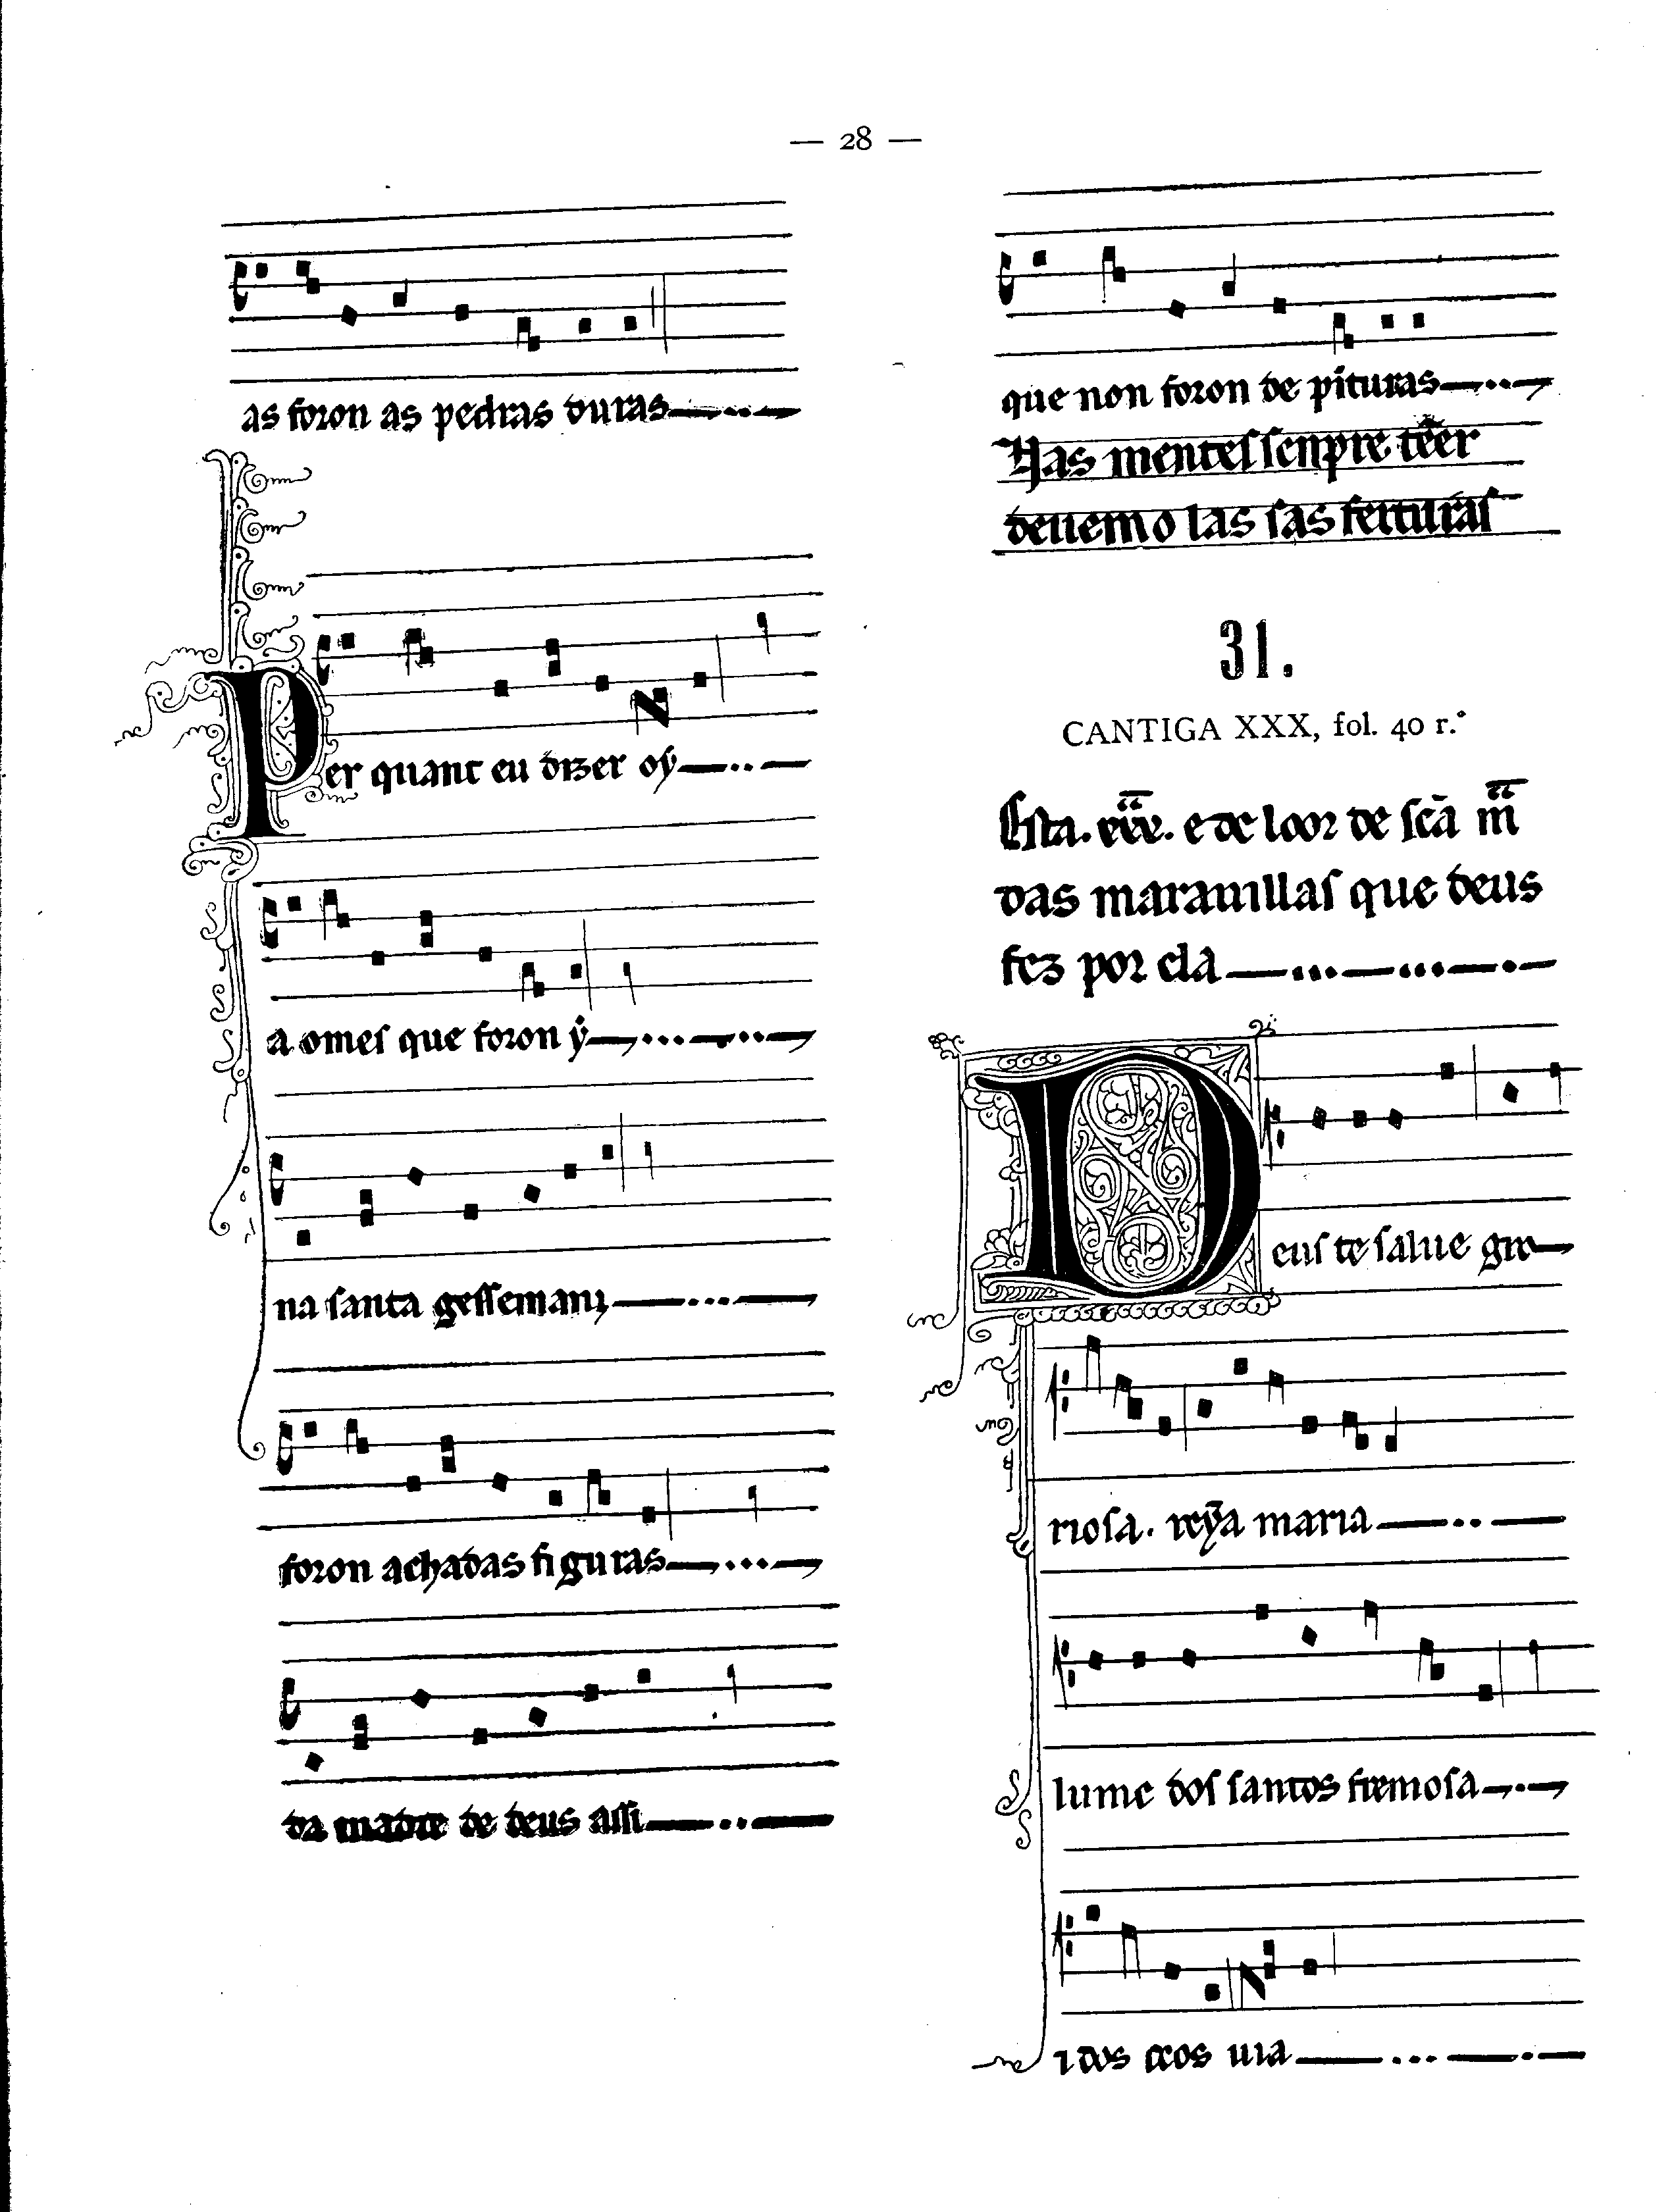 — 28 —
as foron as pedras duras
Per quant eu dizer oẏ
a omes que foron ẏ
na santa gessemani
foron achadas figuras
da madre de deus assi
que non foron de pituras
Nas mentes senpre tẽer
deuemo las sas feituras
31.
CANTIGA XXX, fol. 40 r.º
Esta. e de loor de scã
das marauillas que deus
fez por ela
Deus te salue gro
riosa. reỹa maria
lume dos santos fremosa
dos ceos uia